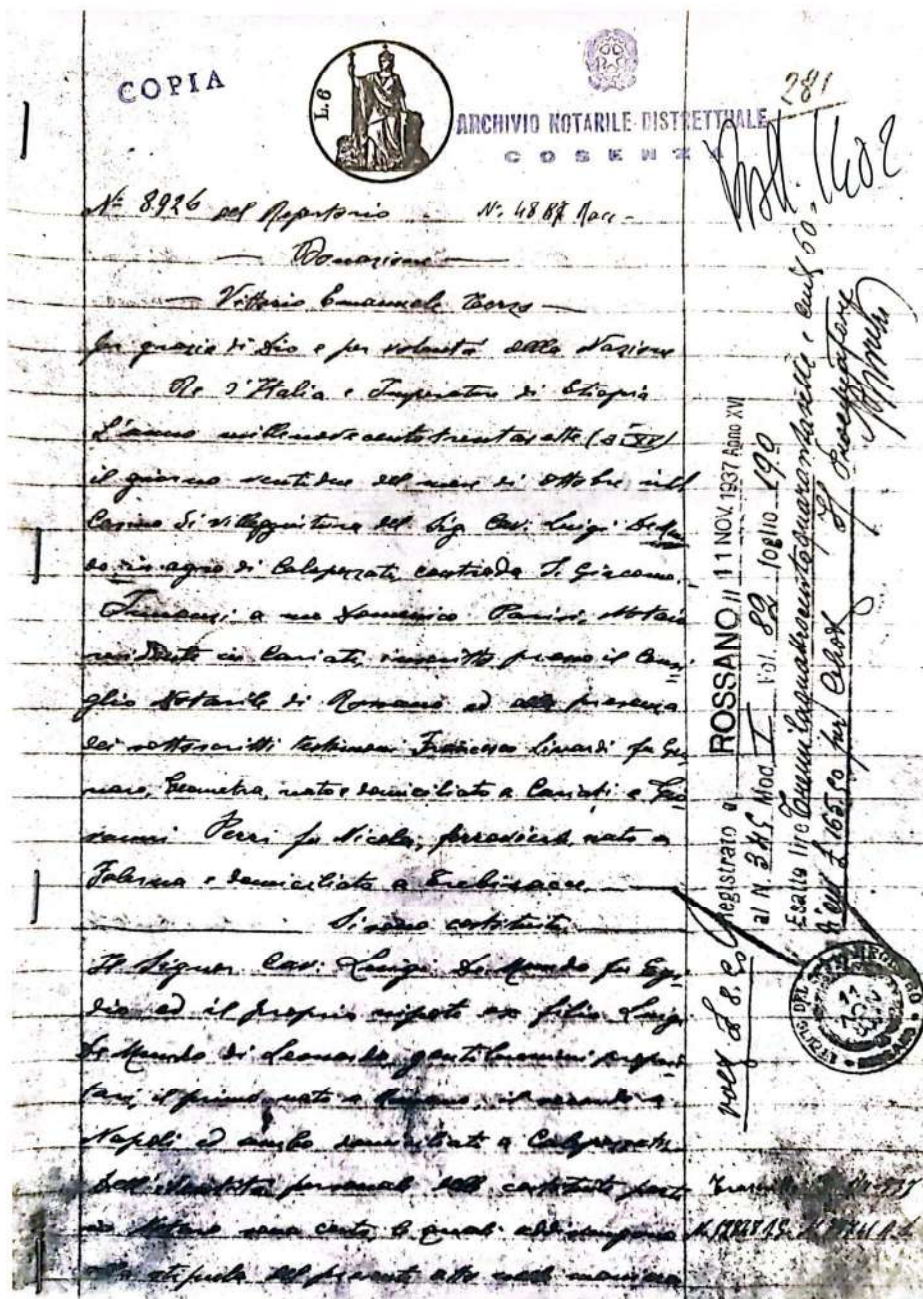 COPIA
L.6
ARCHIVIO NOTARILE DISTRETTUALE
COSENZA
281
1402
N° 8926 del Repertorio - N. 4887 Racc -
Donazione
Vittorio Emanuele Terzo
Per grazia di Dio e per volontà della Nazione
Re d'Italia e Imperatore di Etiopia
L'anno millenovecentotrentasette (a XV)
il giorno ventidue del mese di ottobre nel
Casino di villeggiatura del Sig. Cav. Luigi De Mun
do in agro di Calopezzati, contrada S. Giacomo.
Innanzi a me Domenico Parisi, Notaio
residente in Cariati, inscritto presso il Consi
glio Notarile di Rossano ed alla presenza
dei sottoscritti testimoni Francesco Linardi fu Gen
naro, Geometra, nato e domiciliato a Cariati e Gio
vanni Perri fu Nicola, ferroviere, nato a
Falerna e domiciliato a Trebisacce.
Si sono costituiti
Il Signor Cav. Luigi De Mundo fu Egi
dio ed il proprio nipote ex filio Luigi
De Mundo di Leonardo, gentiluomini proprie
tari, il primo nato a, il secondo a
Napoli ed ambo domiciliati a Calopezzati
Dell'identità personale delle costituite parti
io Notaro sono certo, le quali addivengono
alla stipula del presente atto nella maniera
Registrato a ROSSANO il 11 NOV. 1937 Anno XVI
al N. 345 Mod. I Vol. 82 foglio 190
Esatte lire quattrocentoquarantasette e cent 60
Il Procuratore
11
NOV